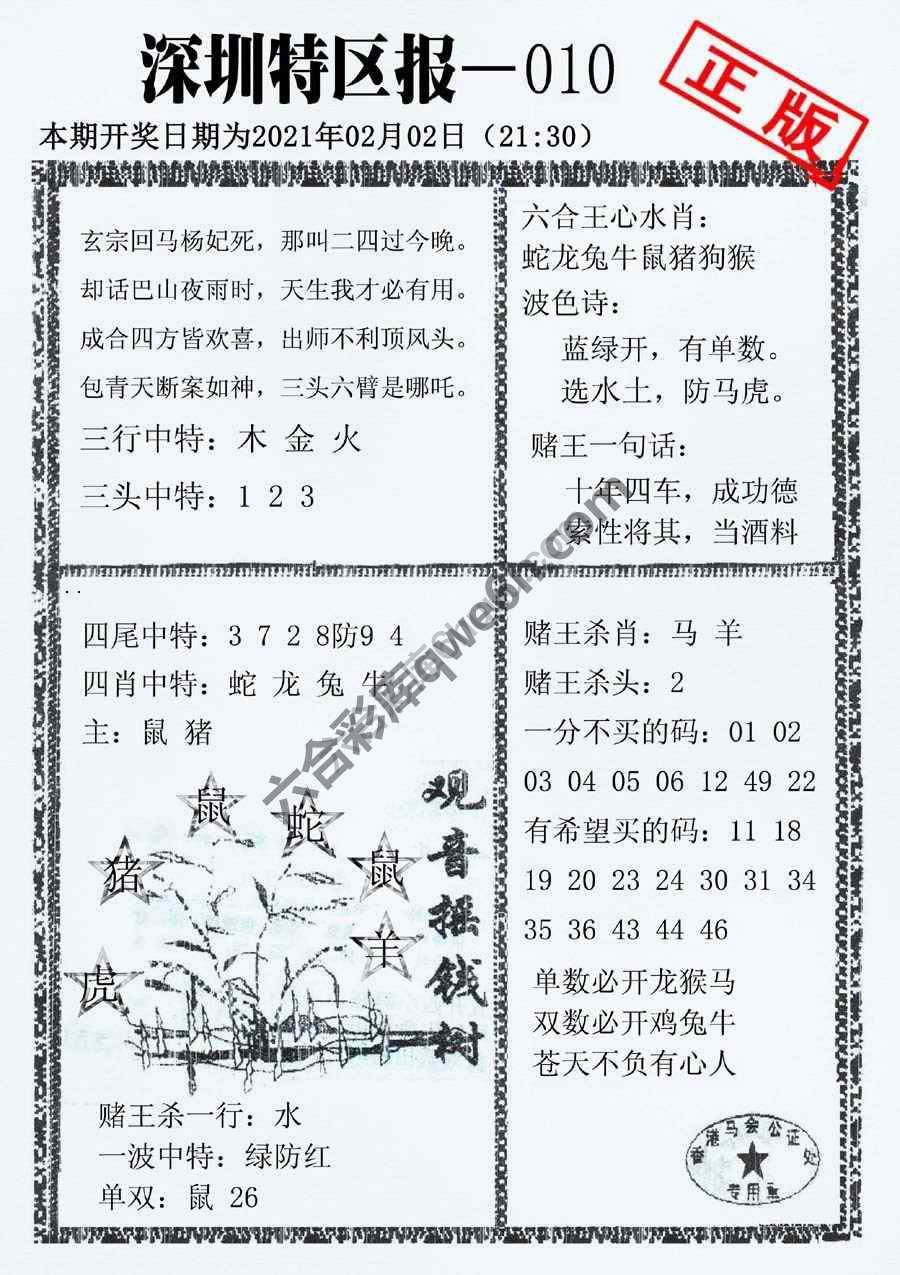 深圳特区报—010
正版
本期开奖日期为2021年02月02日（21:30）
玄宗回马杨妃死，那叫二四过今晚。
却话巴山夜雨时，天生我才必有用。
成合四方皆欢喜，出师不利顶风头。
包青天断案如神，三头六臂是哪吒。
三行中特：木 金 火
三头中特：1 2 3
六合王心水肖：
蛇龙兔牛鼠猪狗猴
波色诗：
蓝绿开，有单数。
选水土，防马虎。
赌王一句话：
十年四车，成功德
索性将其，当酒料
四尾中特：3 7 2 8防9 4
四肖中特：蛇 龙 兔 牛
主：鼠 猪
鼠
蛇
猪
鼠
羊
虎
观音摇钱树
赌王杀一行：水
一波中特：绿防红
单双：鼠 26
赌王杀肖：马 羊
赌王杀头：2
一分不买的码：01 02
03 04 05 06 12 49 22
有希望买的码：11 18
19 20 23 24 30 31 34
35 36 43 44 46
单数必开龙猴马
双数必开鸡兔牛
苍天不负有心人
香港马会公证处
专用章
六合彩库qwe6h.com